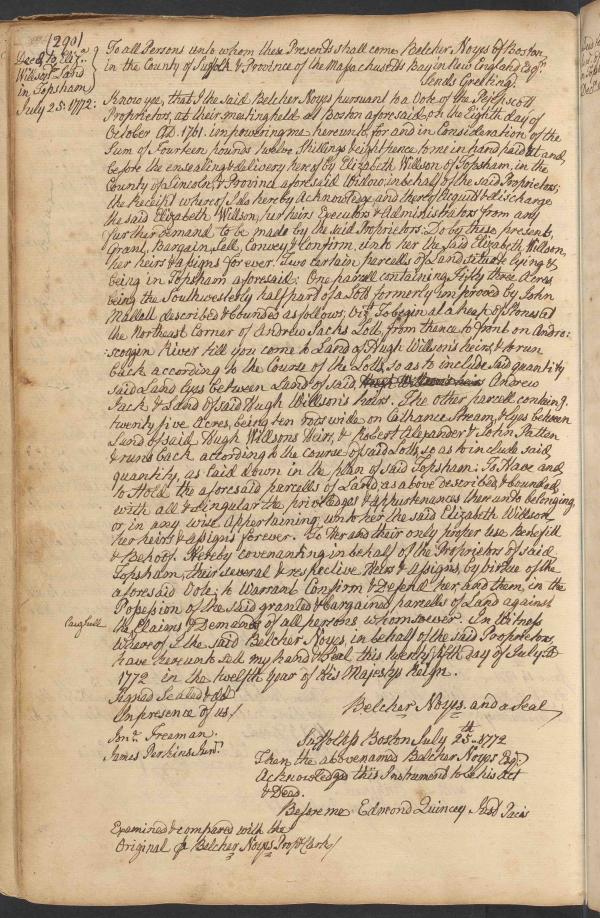 (290)
Deed to Eliz.a
Willson Land
in Topsham
July 25: 1772:
To all Persons unto whom these Presents shall come Belcher Noyes of Boston
in the County of Suffolk & Province of the Massachusetts Bay in New England Esq.r
Sends Greeting.
Know yee, that I the said Belcher Noyes pursuant to a Vote of the Pejepscott
Proprietors, at their meeting held at Boston aforesaid, on the Eighth day of
October AD. 1761. impowering me hereunto, for and in Consideration of the
Sum of Fourteen pounds twelve Shillings & eight pence to me in hand paid at and,
before the ensealing & delivery hereof by Elizabeth Willson of Topsham, in the
County of Lincoln, & Province aforesaid Widow in behalf of the said Proprietors;
the Receipt whereof I do hereby Acknowledge and thereof Acquit & discharge
the said Elizabeth Willson, her heirs Executors & Administrators from any
further Demand to be made by the said Proprietors. Do by these presents,
Grant, Bargain, Sell, Convey & Confirm, unto her the said Elizabeth Willson,
her heirs & assigns forever. Two certain parcells of Land situate lying &
being in Topsham aforesaid: One parcell containing Fifty three Acres
being the Southwesterly half part of a Lott formerly improved by John
Mallall described & bounded as follows; viz.t To begin at a heap of Stones at
the Northeast Corner of Andrew Jacks Lott, from thence to front on Andro:
:scoggin River till you come to Land of Hugh Willson's heirs, & to run
back according to the Course of the Lotts, so as to include said quantity
said Land lyes between Land of said, Hugh Willson's heirs Andrew
Jack & Land of said Hugh Willson's heirs. The other parcell containg.
twenty five Acres, being ten rods wide on Cathance Stream, & lyes between
Land of said Hugh Willsons Heirs, & Robert Alexander & John Patten
& runs back according to the course of said Lotts, so as to include said
quantity, as laid down in the plan of said Topsham; To Have and
to Hold the aforesaid parcells of Land, as above described & bounded,
with all & singular the priviledges & appurtenances thereunto belonging
or in any wise Appertaining unto her the said Elizabeth Willson,
her heirs & assigns forever. To Her and their only proper Use Benefitt
& Behoof. Hereby covenanting in behalf of the Proprietors of said
Topsham, their several & respective Heirs & assigns, by virtue of the
aforesaid Vote; to Warrant Confirm & Defend her and them, in the
Possession of the said granted & bargained parcells of Land against
the Claims & Demands of all persons whomsoever. In Witness
Whereof I the said Belcher Noyes, in behalf of the said Proprietors,
have hereunto set my hand & Seal this twenty fifth day of July AD
1772 in the twelfth Year of His Majestys Reign.
Signed Sealed & del.d
In presence of us /
Belcher Noyes. and a Seal
Jon.a Freeman.
James Perkins Jun.r
Suffolk ss Boston July 25.th 1772
Then the abovenamed Belcher Noyes Esq.r
Acknowledged this Instrument to be his Act
& Deed.
Before me Edmond Quincey Just Pacis
Examined & compared with the
Original p Belcher Noyes Prop.rs Clerk /